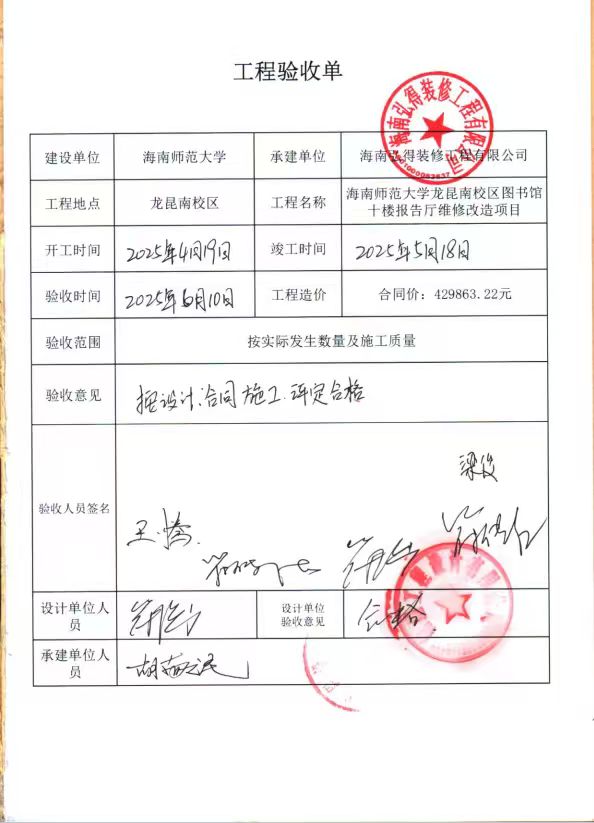 工程验收单
海南弘得装修工程有限公司
建设单位 海南师范大学 承建单位 海南弘得装修工程有限公司
工程地点 龙昆南校区 工程名称 海南师范大学龙昆南校区图书馆
十楼报告厅维修改造项目
开工时间 2025年4月19日 竣工时间 2025年5月18日
验收时间 2025年6月10日 工程造价 合同价：429863.22元
验收范围 按实际发生数量及施工质量
验收意见 按设计、合同施工、评定合格
梁俊
验收人员签名
王
设计单位人
员
设计单位
验收意见
合格
承建单位人
员
胡